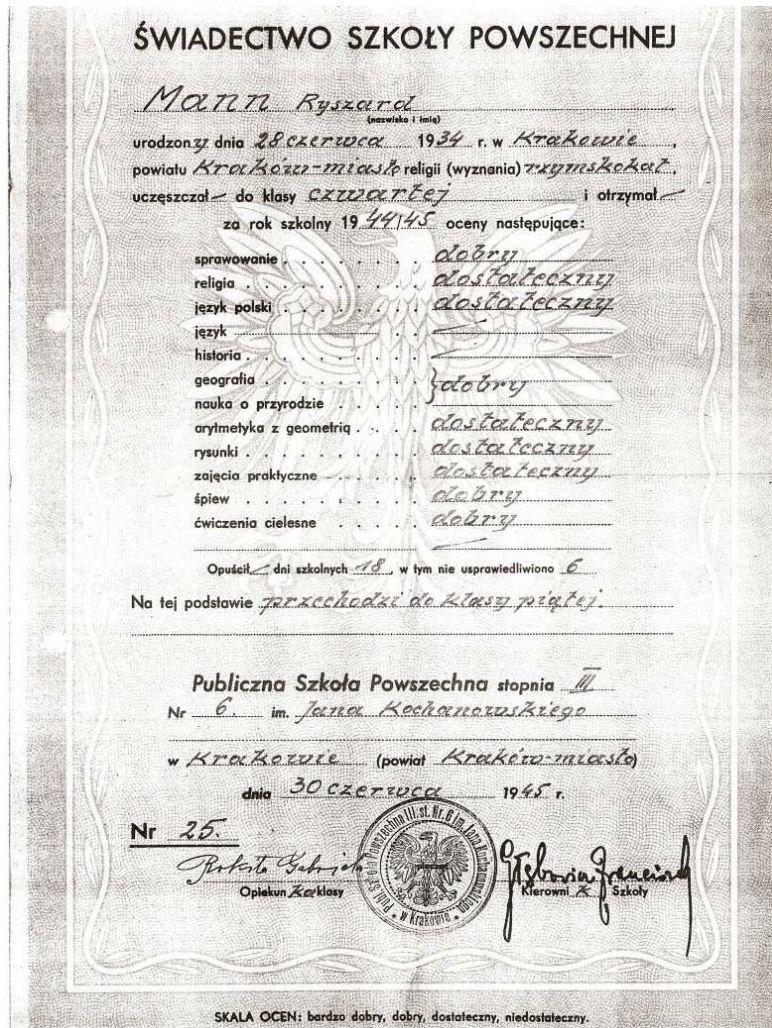 ŚWIADECTWO SZKOŁY POWSZECHNEJ
Mann Ryszard
(nazwisko i imię)
urodzony dnia 28 czerwca 1934 r. w Krakowie,
powiatu Kraków-miasto religii (wyznania) rzymskokat,
uczęszczał do klasy czwartej i otrzymał
za rok szkolny 1944/45 oceny następujące:
sprawowanie . . . . . . . dobry
religia . . . . . . . . dostateczny
język polski . . . . . . . dostateczny
język
historia . . . . . . . .
geografia . . . . . . . } dobry
nauka o przyrodzie . . . .
arytmetyka z geometrią . . . . dostateczny
rysunki . . . . . . . . dostateczny
zajęcia praktyczne . . . . dostateczny
śpiew . . . . . . . . dobry
ćwiczenia cielesne . . . . . dobry
Opuścił dni szkolnych 18, w tym nie usprawiedliwiono 6
Na tej podstawie przechodzi do klasy piątej.
Publiczna Szkoła Powszechna stopnia III
Nr 6. im. Jana Kochanowskiego
w Krakowie (powiat Kraków-miasto)
dnia 30 czerwca 1945 r.
Nr 25.
Publ. Szkoła Powszechna III. st. Nr. 6 im. Jana Kochanowskiego
w Krakowie
Gabriela
Opiekunka klasy
Franciszek
Kierownik Szkoły
SKALA OCEN: bardzo dobry, dobry, dostateczny, niedostateczny.